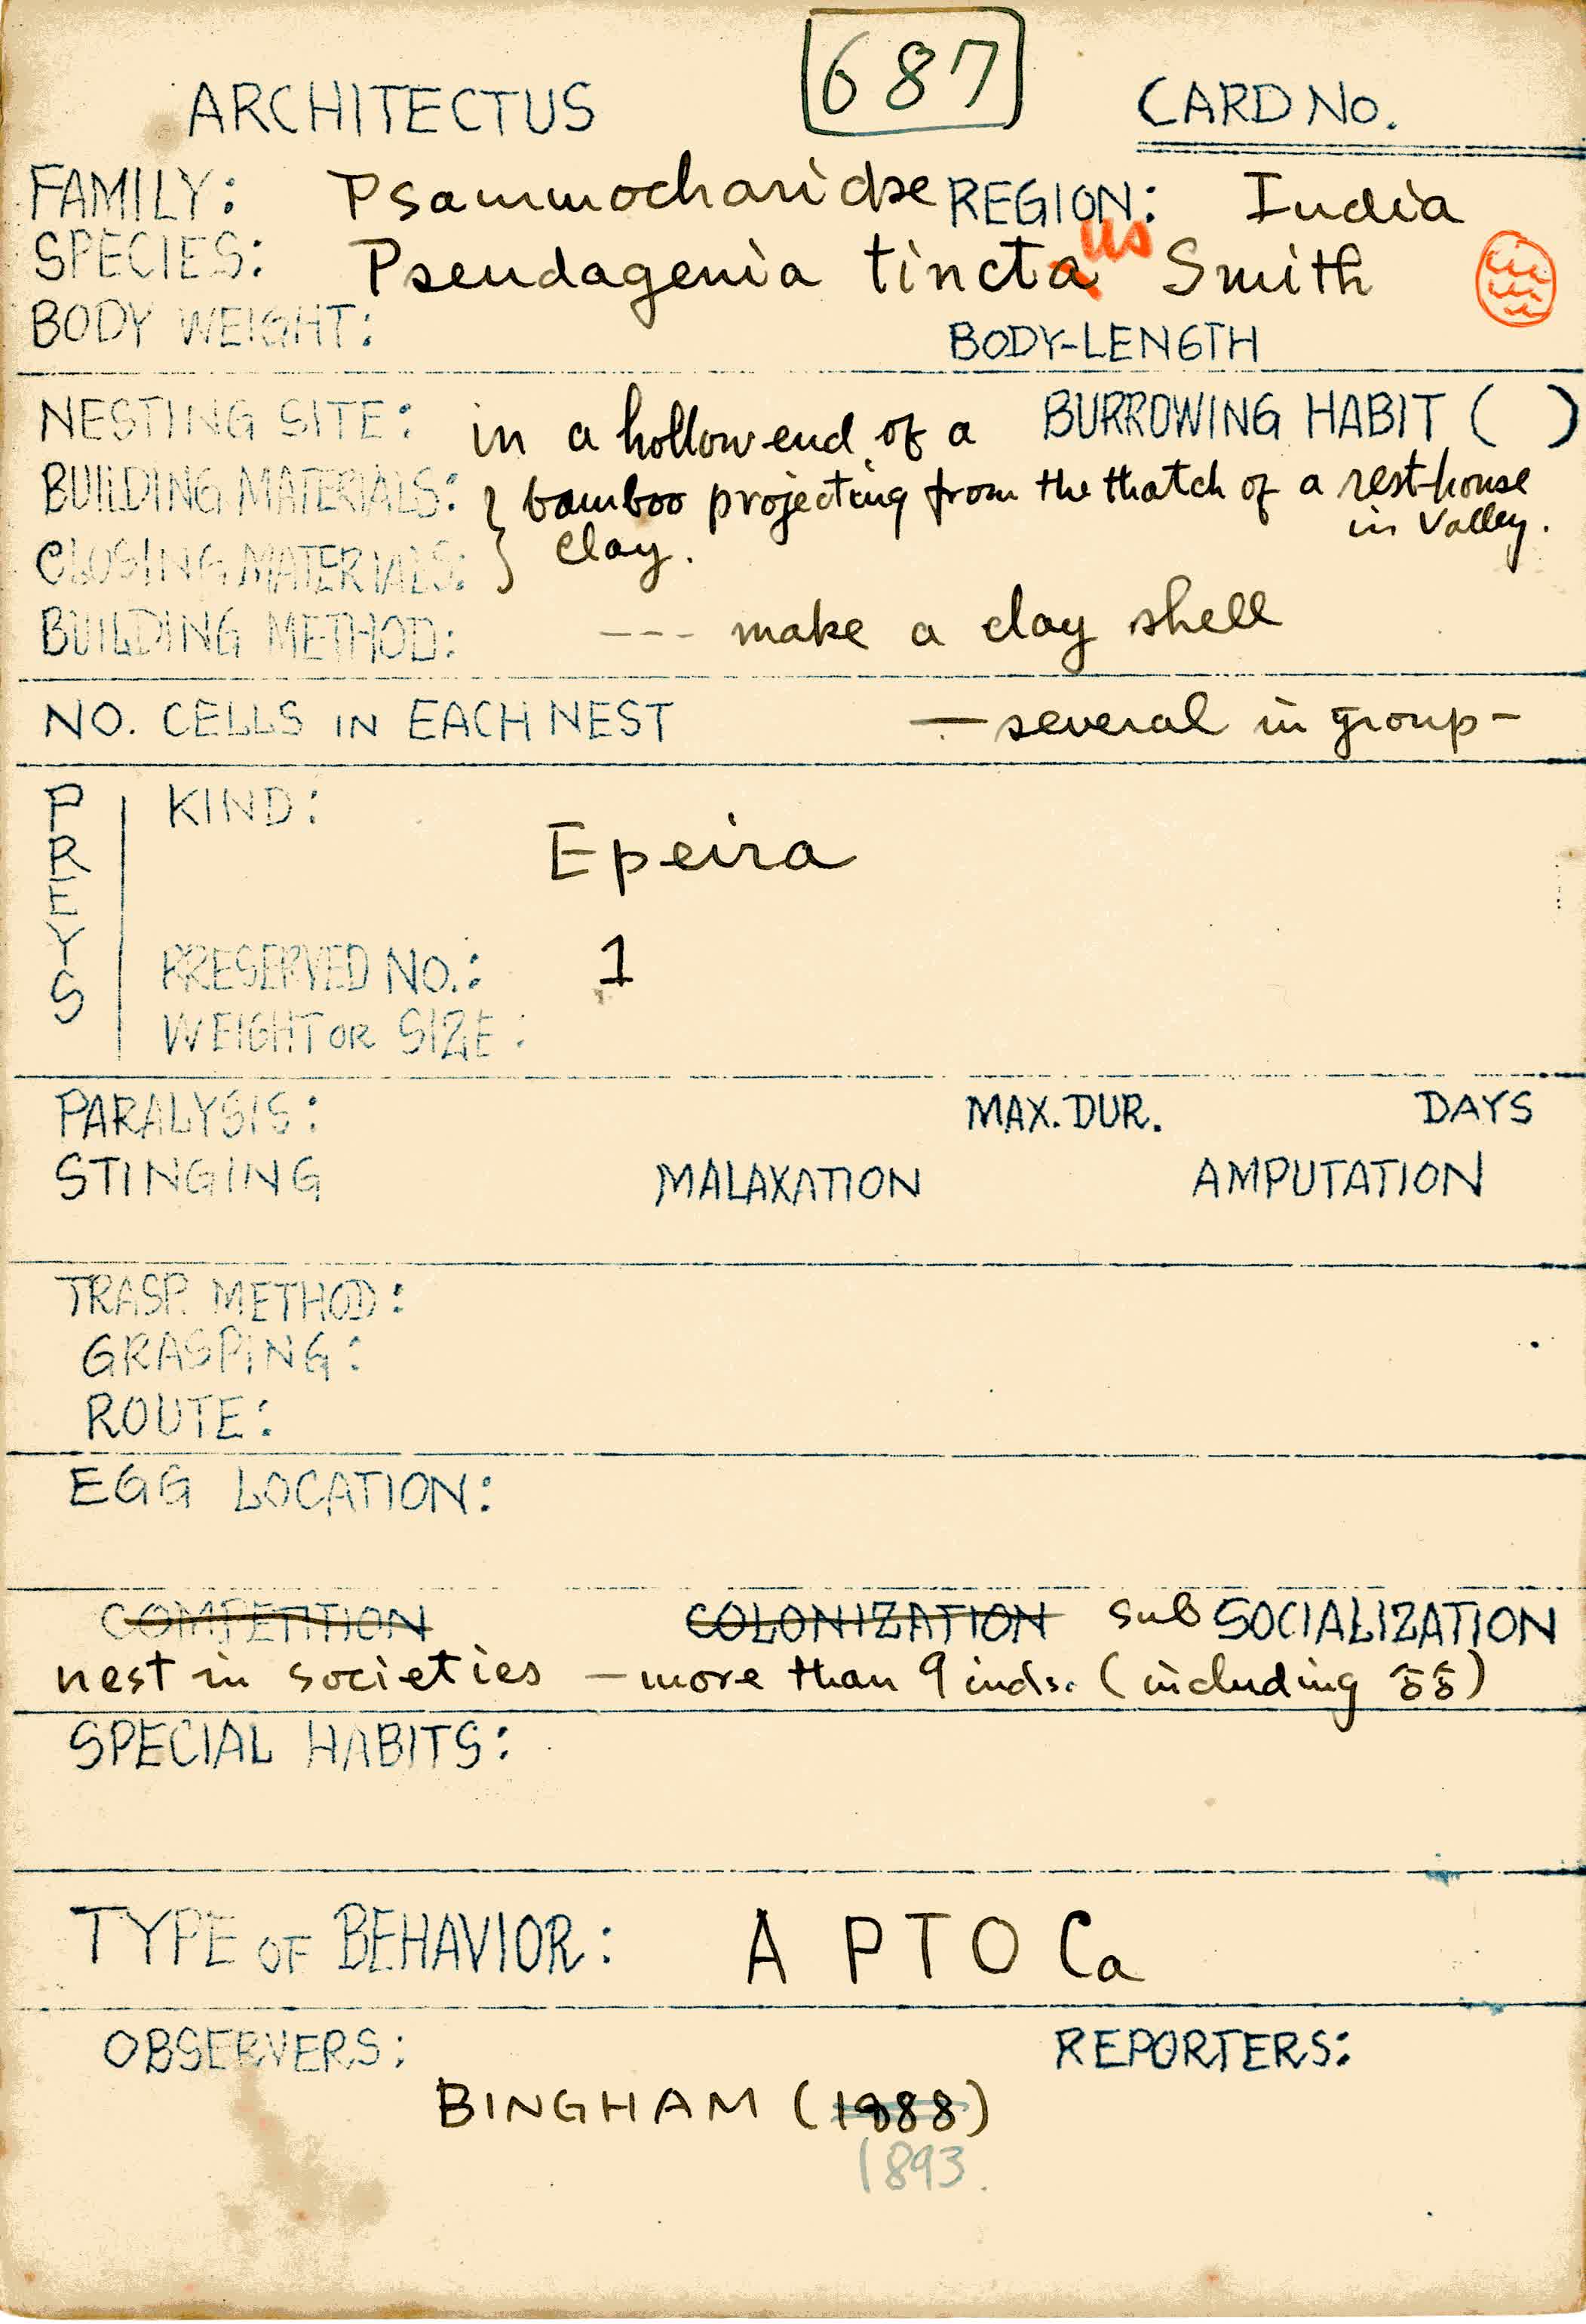 687
ARCHITECTUS CARD No.
FAMILY: Psammocharidae REGION: India
SPECIES: Pseudagenia tincta us Smith
BODY WEIGHT: BODY-LENGTH
NESTING SITE: in a hollow end of a BURROWING HABIT ( )
BUILDING MATERIALS: } bamboo projecting from the thatch of a rest-house
in Valley.
CLOSING MATERIALS: } clay.
BUILDING METHOD: --- make a clay shell
NO. CELLS IN EACH NEST — several in group —
PREYS
KIND:
Epeira
PRESERVED NO.: 1
WEIGHT OR SIZE:
PARALYSIS: MAX. DUR. DAYS
STINGING MALAXATION AMPUTATION
TRASP. METHOD:
GRASPING:
ROUTE:
EGG LOCATION:
COMPETITION COLONIZATION sub SOCIALIZATION
nest in societies — more than 9 inds. (including ♂♂)
SPECIAL HABITS:
TYPE OF BEHAVIOR: A P T O Ca
OBSERVERS: REPORTERS:
BINGHAM (1988)
1893.